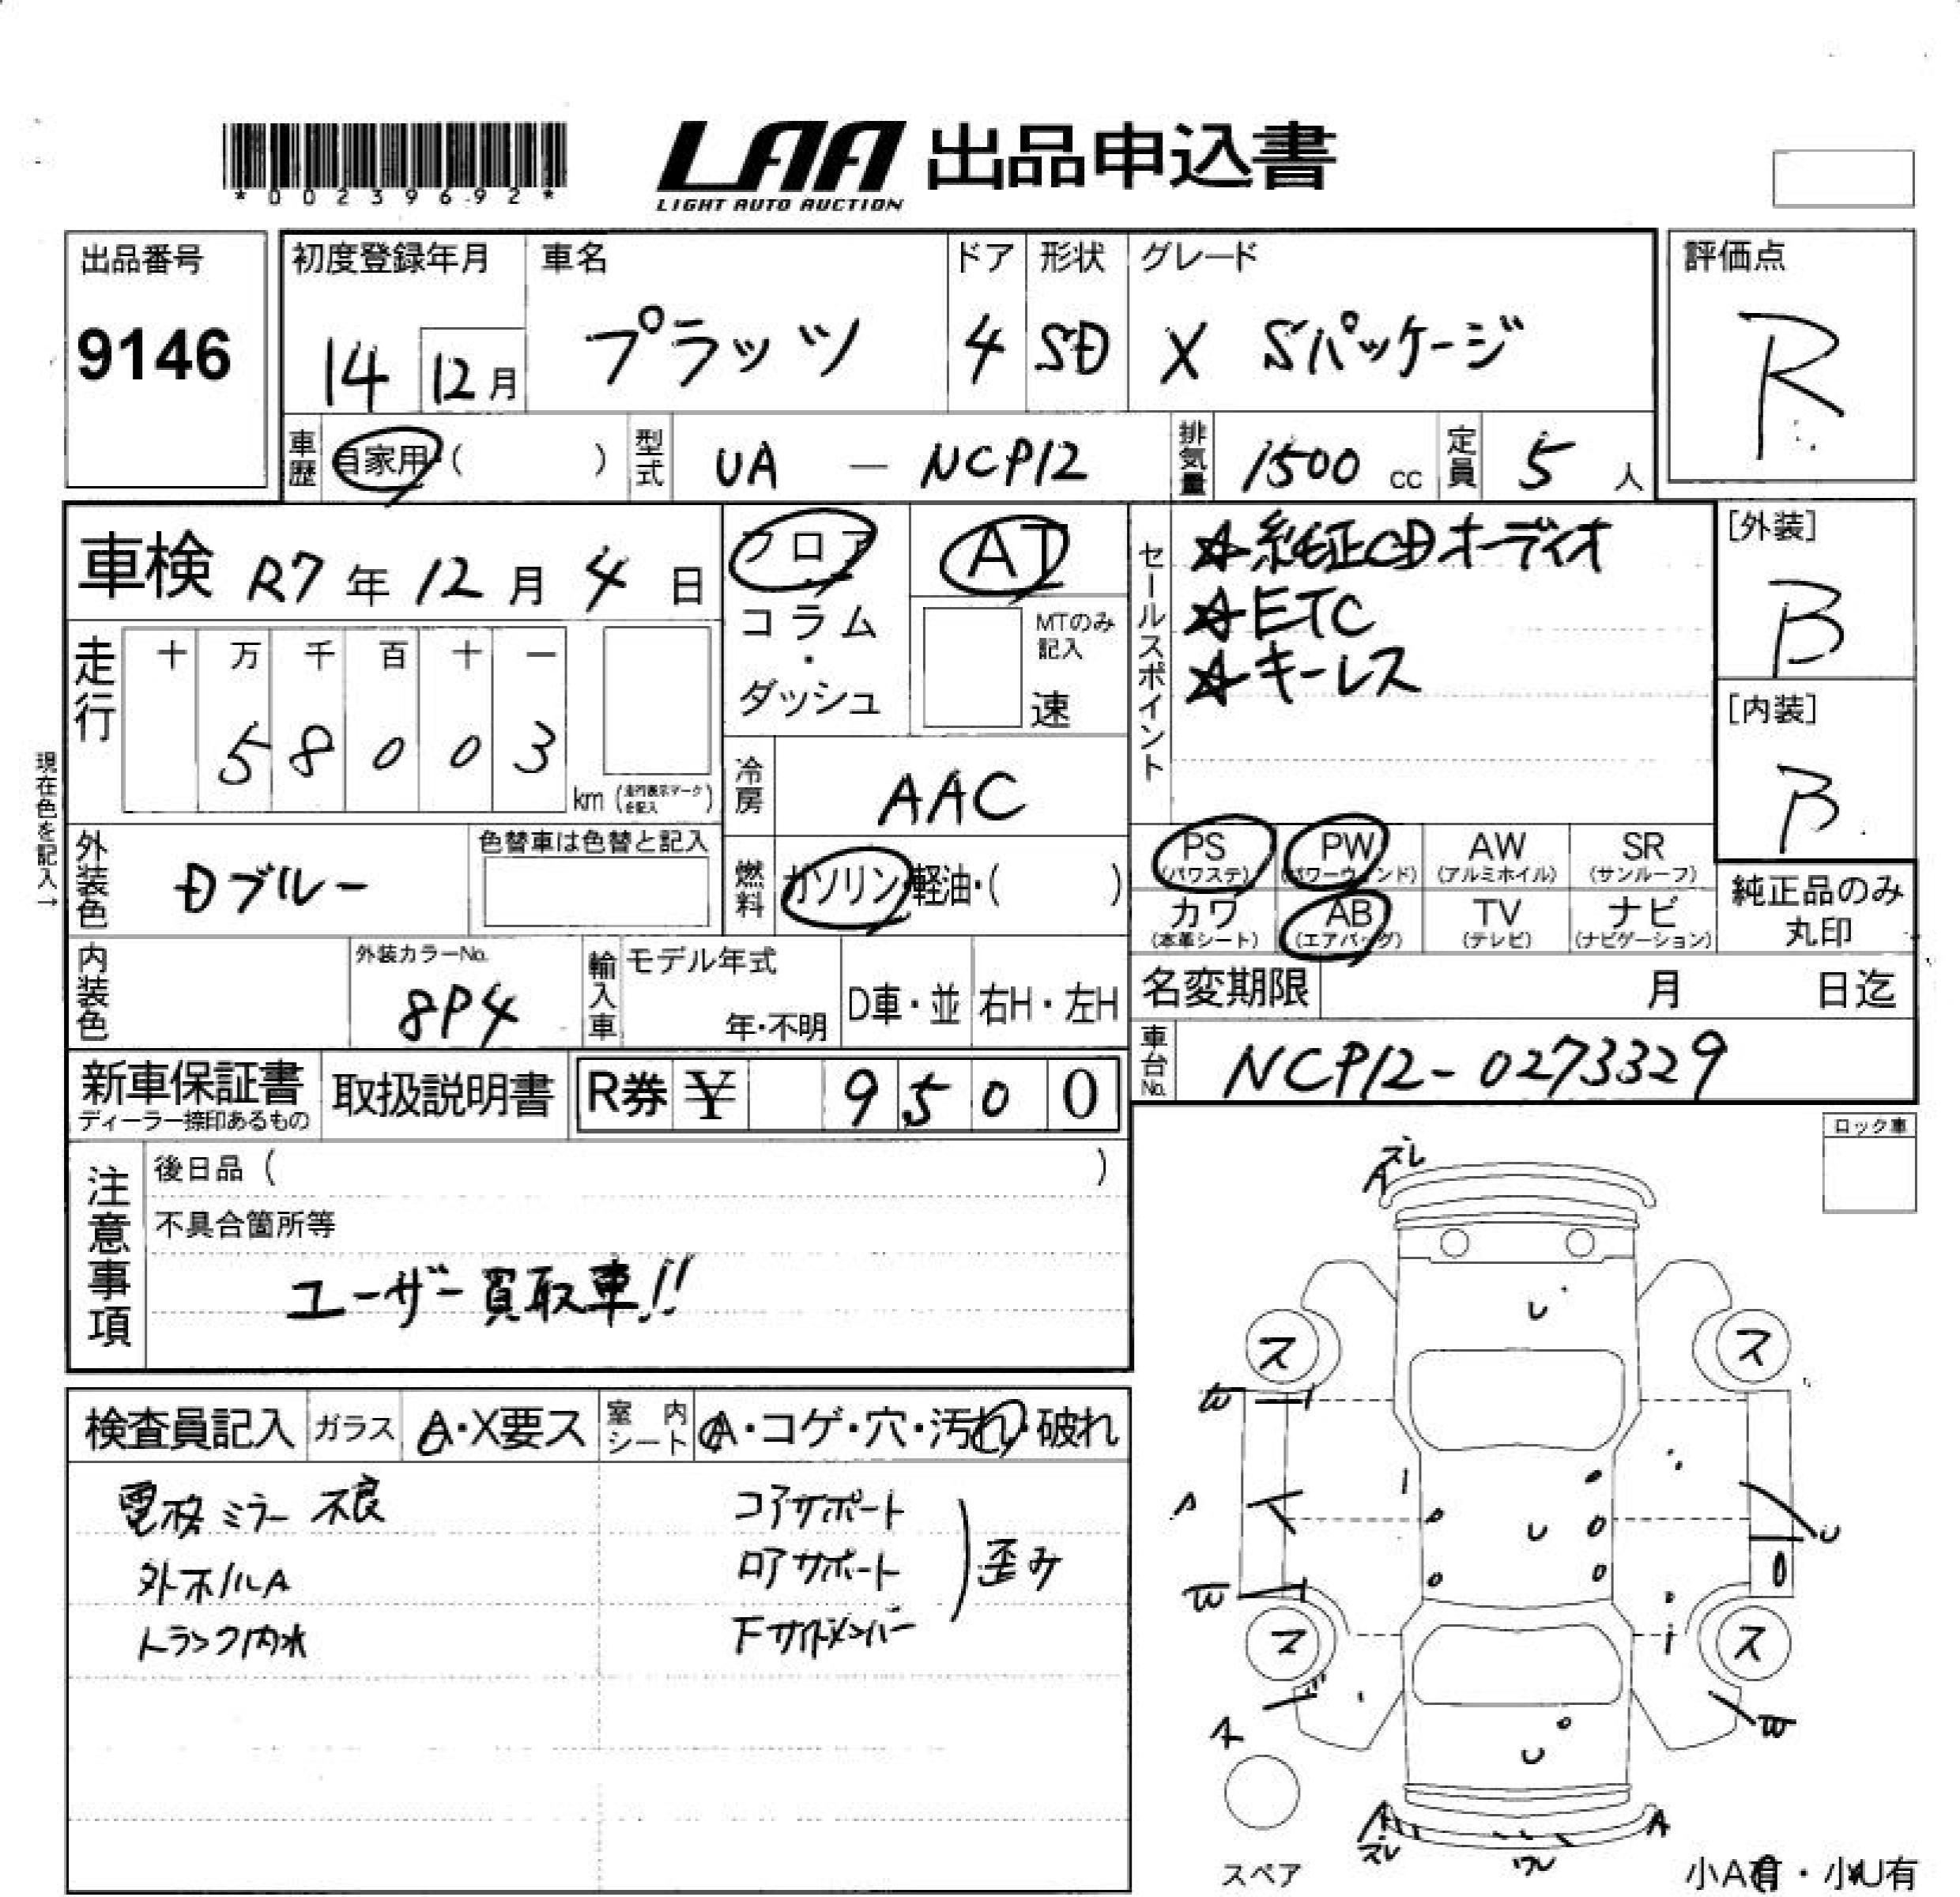 *00239692*
LAA 出品申込書
LIGHT AUTO AUCTION
出品番号
9146
初度登録年月
14 12月
車名
プラッツ
ドア
4
形状
SD
グレード
X Sパッケージ
評価点
R
車歴 自家用・( )
型式 UA — NCP12
排気量 1500 cc
定員 5 人
車検 R7年 12月 4日
走行
十 万 千 百 十 一
5 8 0 0 3
km (走行表示マークを記入)
現在色を記入→
フロア・コラム・ダッシュ
AT
MTのみ記入
速
冷房 AAC
燃料 ガソリン・軽油・( )
外装色 Dブルー
色替車は色替と記入
内装色
外装カラーNo.
8P4
輸入車
モデル年式
年・不明
D車・並
右H・左H
セールスポイント
☆純正CDオーディオ
☆ETC
☆キーレス
[外装]
B
[内装]
B
PS (パワステ)
PW (パワーウィンド)
AW (アルミホイル)
SR (サンルーフ)
カワ (本革シート)
AB (エアバッグ)
TV (テレビ)
ナビ (ナビゲーション)
純正品のみ
丸印
名変期限 月 日迄
車台No. NCP12-0273329
新車保証書
ディーラー捺印あるもの
取扱説明書
R券 ¥ 9 5 0 0
注意事項
後日品 ( )
不具合箇所等
ユーザー買取車!!
ロック車
検査員記入
ガラス A・X要ス
室内シート A・コゲ・穴・汚れ・破れ
電格ミラー不良
外ホイルA
トランク内水
コアサポート
ロアサポート
Fサイドメンバー
歪み
ズレ
A
U
ス
ス
W
A
U
W
U
ス
ス
A
W
U
A
ズレ
ワレ
A
スペア
小A有・小U有